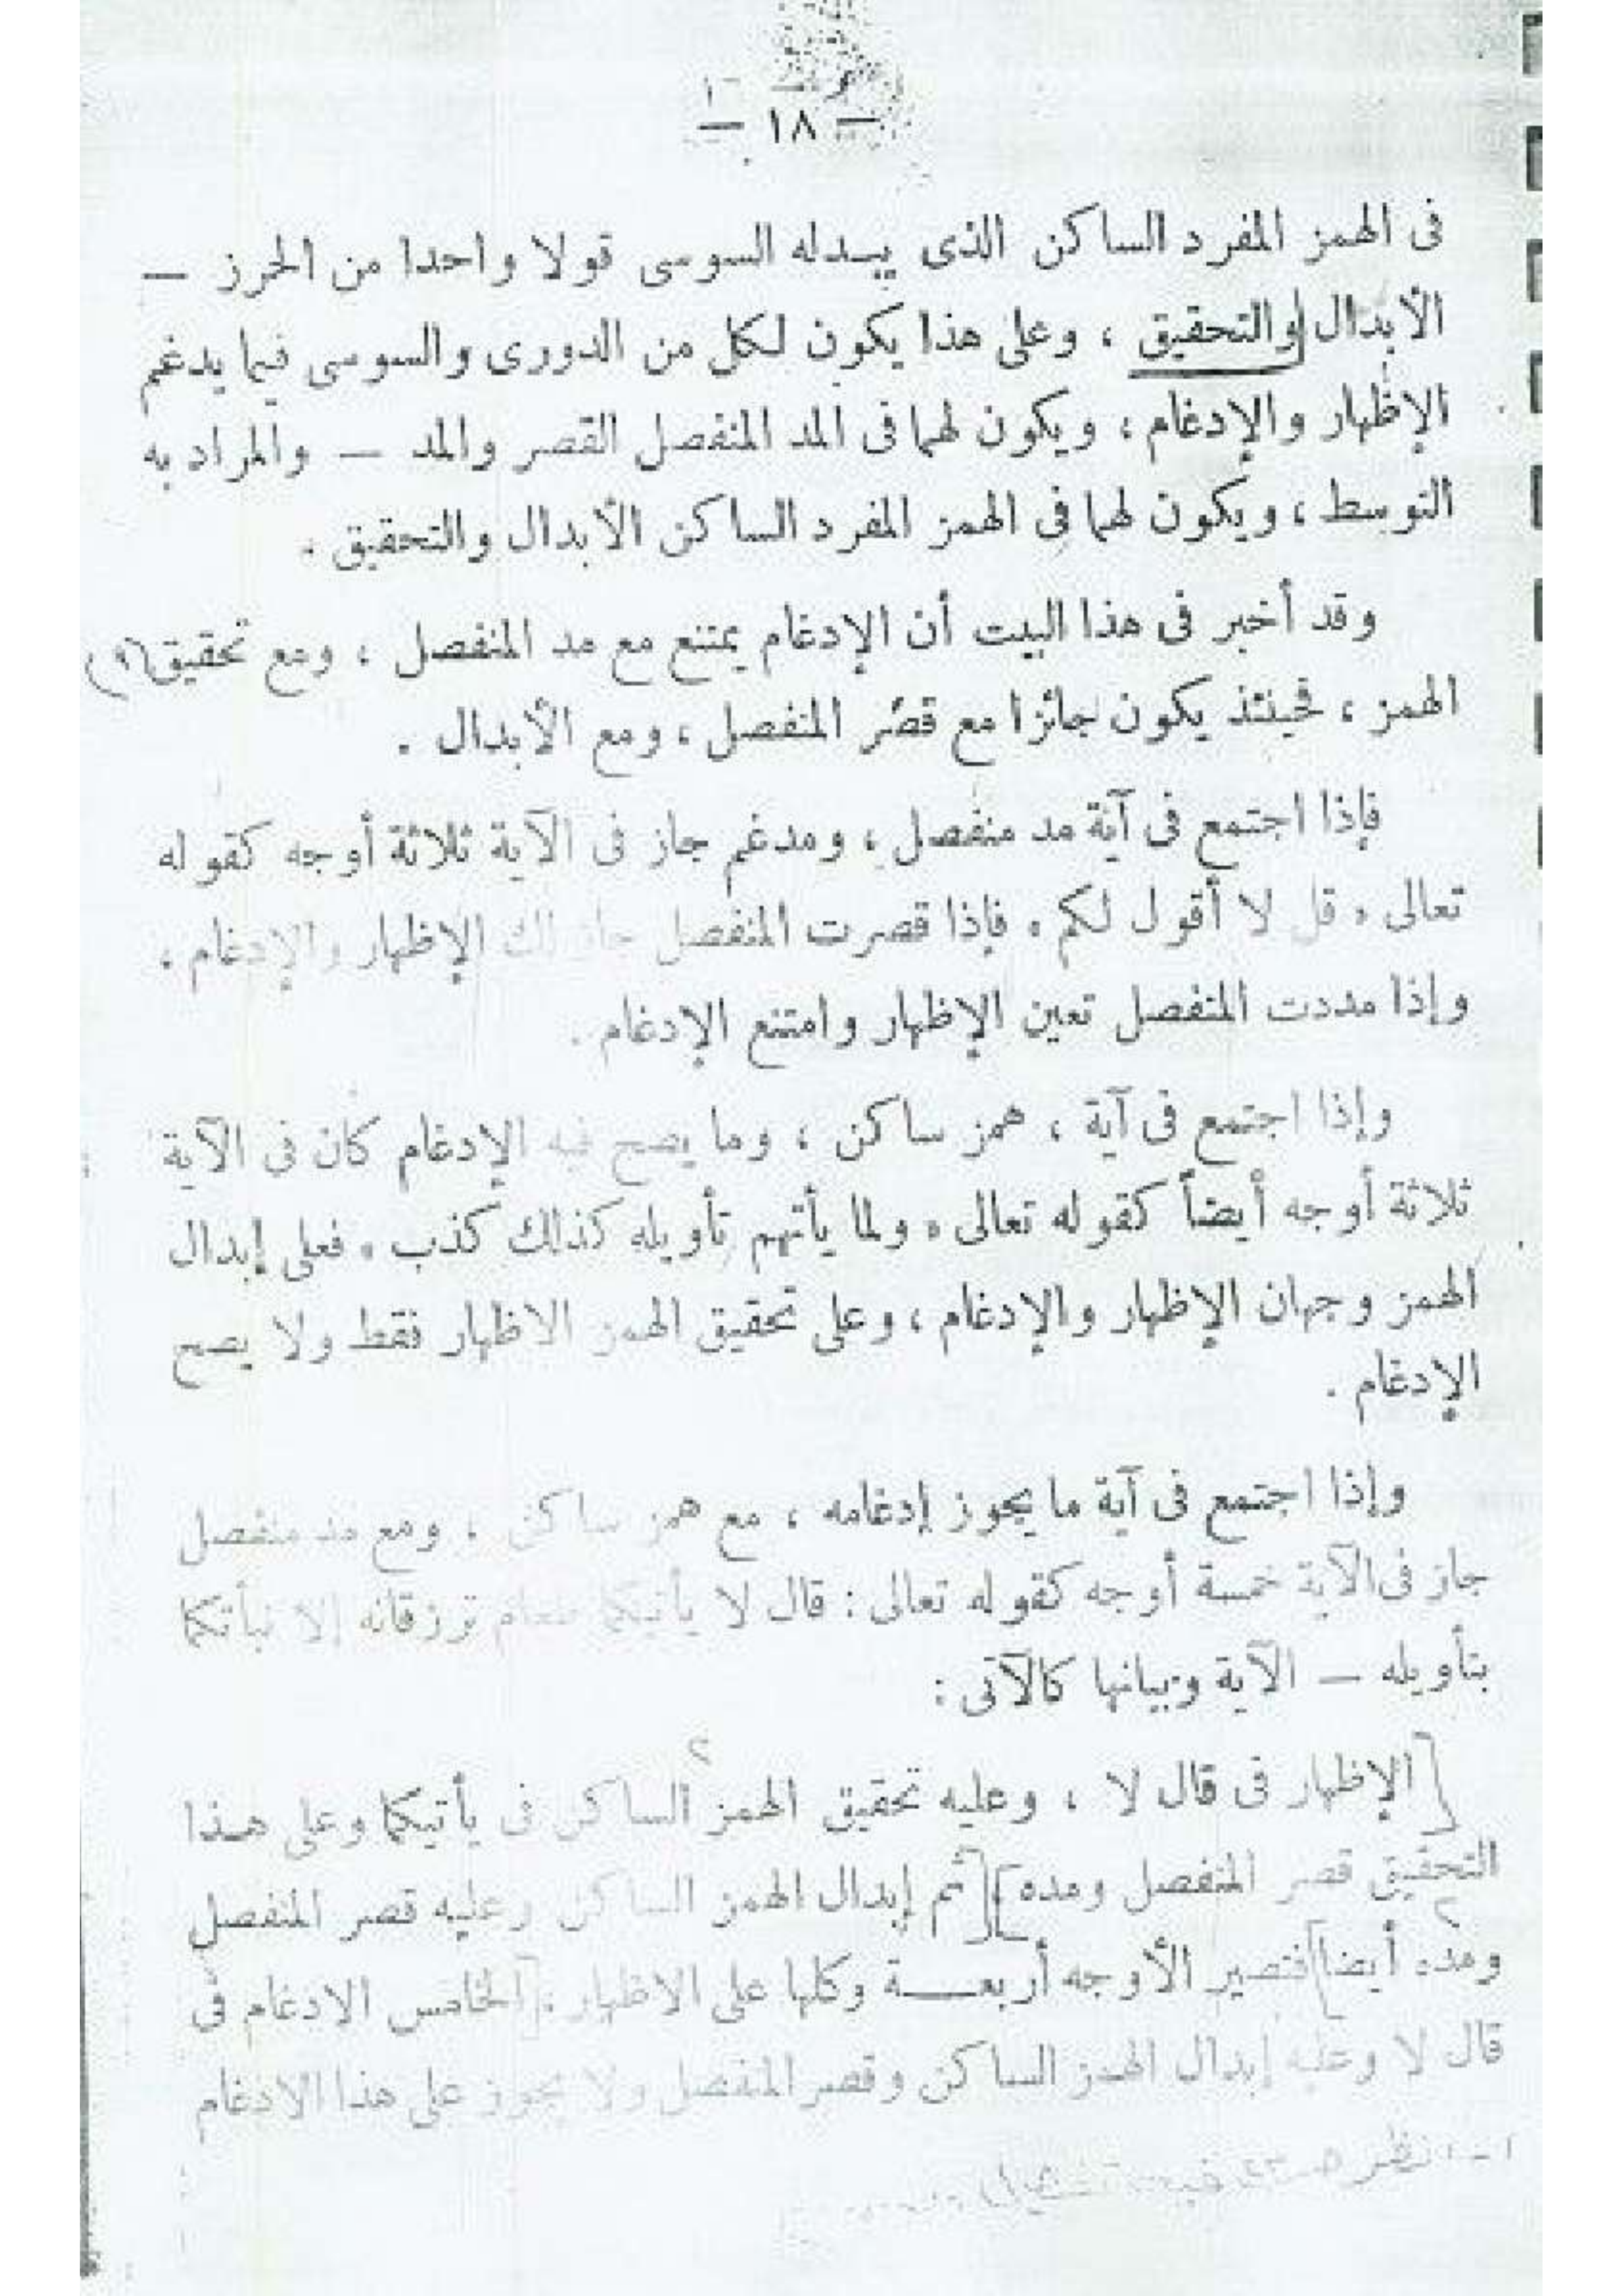 — ١٨ —
فى الهمز المفرد الساكن الذى يبدله السوسى قولا واحدا من الحرز —
الأبدال والتحقيق ، وعلى هذا يكون لكل من الدورى والسوسى فيما يدغم
الإظهار والإدغام ، ويكون لهما فى المد المنفصل القصر والمد — والمراد به
التوسط ، ويكون لهما فى الهمز المفرد الساكن الأبدال والتحقيق .
وقد أخبر فى هذا البيت أن الإدغام يمتنع مع مد المنفصل ، ومع تحقيق
الهمز ، فحينئذ يكون جائزا مع قصر المنفصل ، ومع الأبدال .
فإذا اجتمع فى آية مد منفصل ، ومدغم جاز فى الآية ثلاثة أوجه كقوله
تعالى « قل لا أقول لكم » فإذا قصرت المنفصل جاز لك الإظهار والإدغام ،
وإذا مددت المنفصل تعين الإظهار وامتنع الإدغام .
وإذا اجتمع فى آية ، همز ساكن ، وما يصح فيه الإدغام كان فى الآية
ثلاثة أوجه أيضاً كقوله تعالى « ولما يأتهم تأويله كذلك كذب » فعلى إبدال
الهمز وجهان الإظهار والإدغام ، وعلى تحقيق الهمز الاظهار فقط ولا يصح
الإدغام .
وإذا اجتمع فى آية ما يجوز إدغامه ، مع همز ساكن ، ومع مد منفصل
جاز فى الآية خمسة أوجه كقوله تعالى : قال لا يأتيكما طعام ترزقانه إلا نبأتكما
بتأويله — الآية وبيانها كالآتى :
الإظهار فى قال لا ، وعليه تحقيق الهمز الساكن فى يأتيكما وعلى هذا
التحقيق قصر المنفصل ومده ثم إبدال الهمز الساكن وعليه قصر المنفصل
ومده أيضا فتصير الأوجه أربعـــة وكلها على الاظهار ، الخامس الادغام فى
قال لا وعليه إبدال الهمز الساكن وقصر المنفصل ولا يجوز على هذا الادغام
١ - انظر